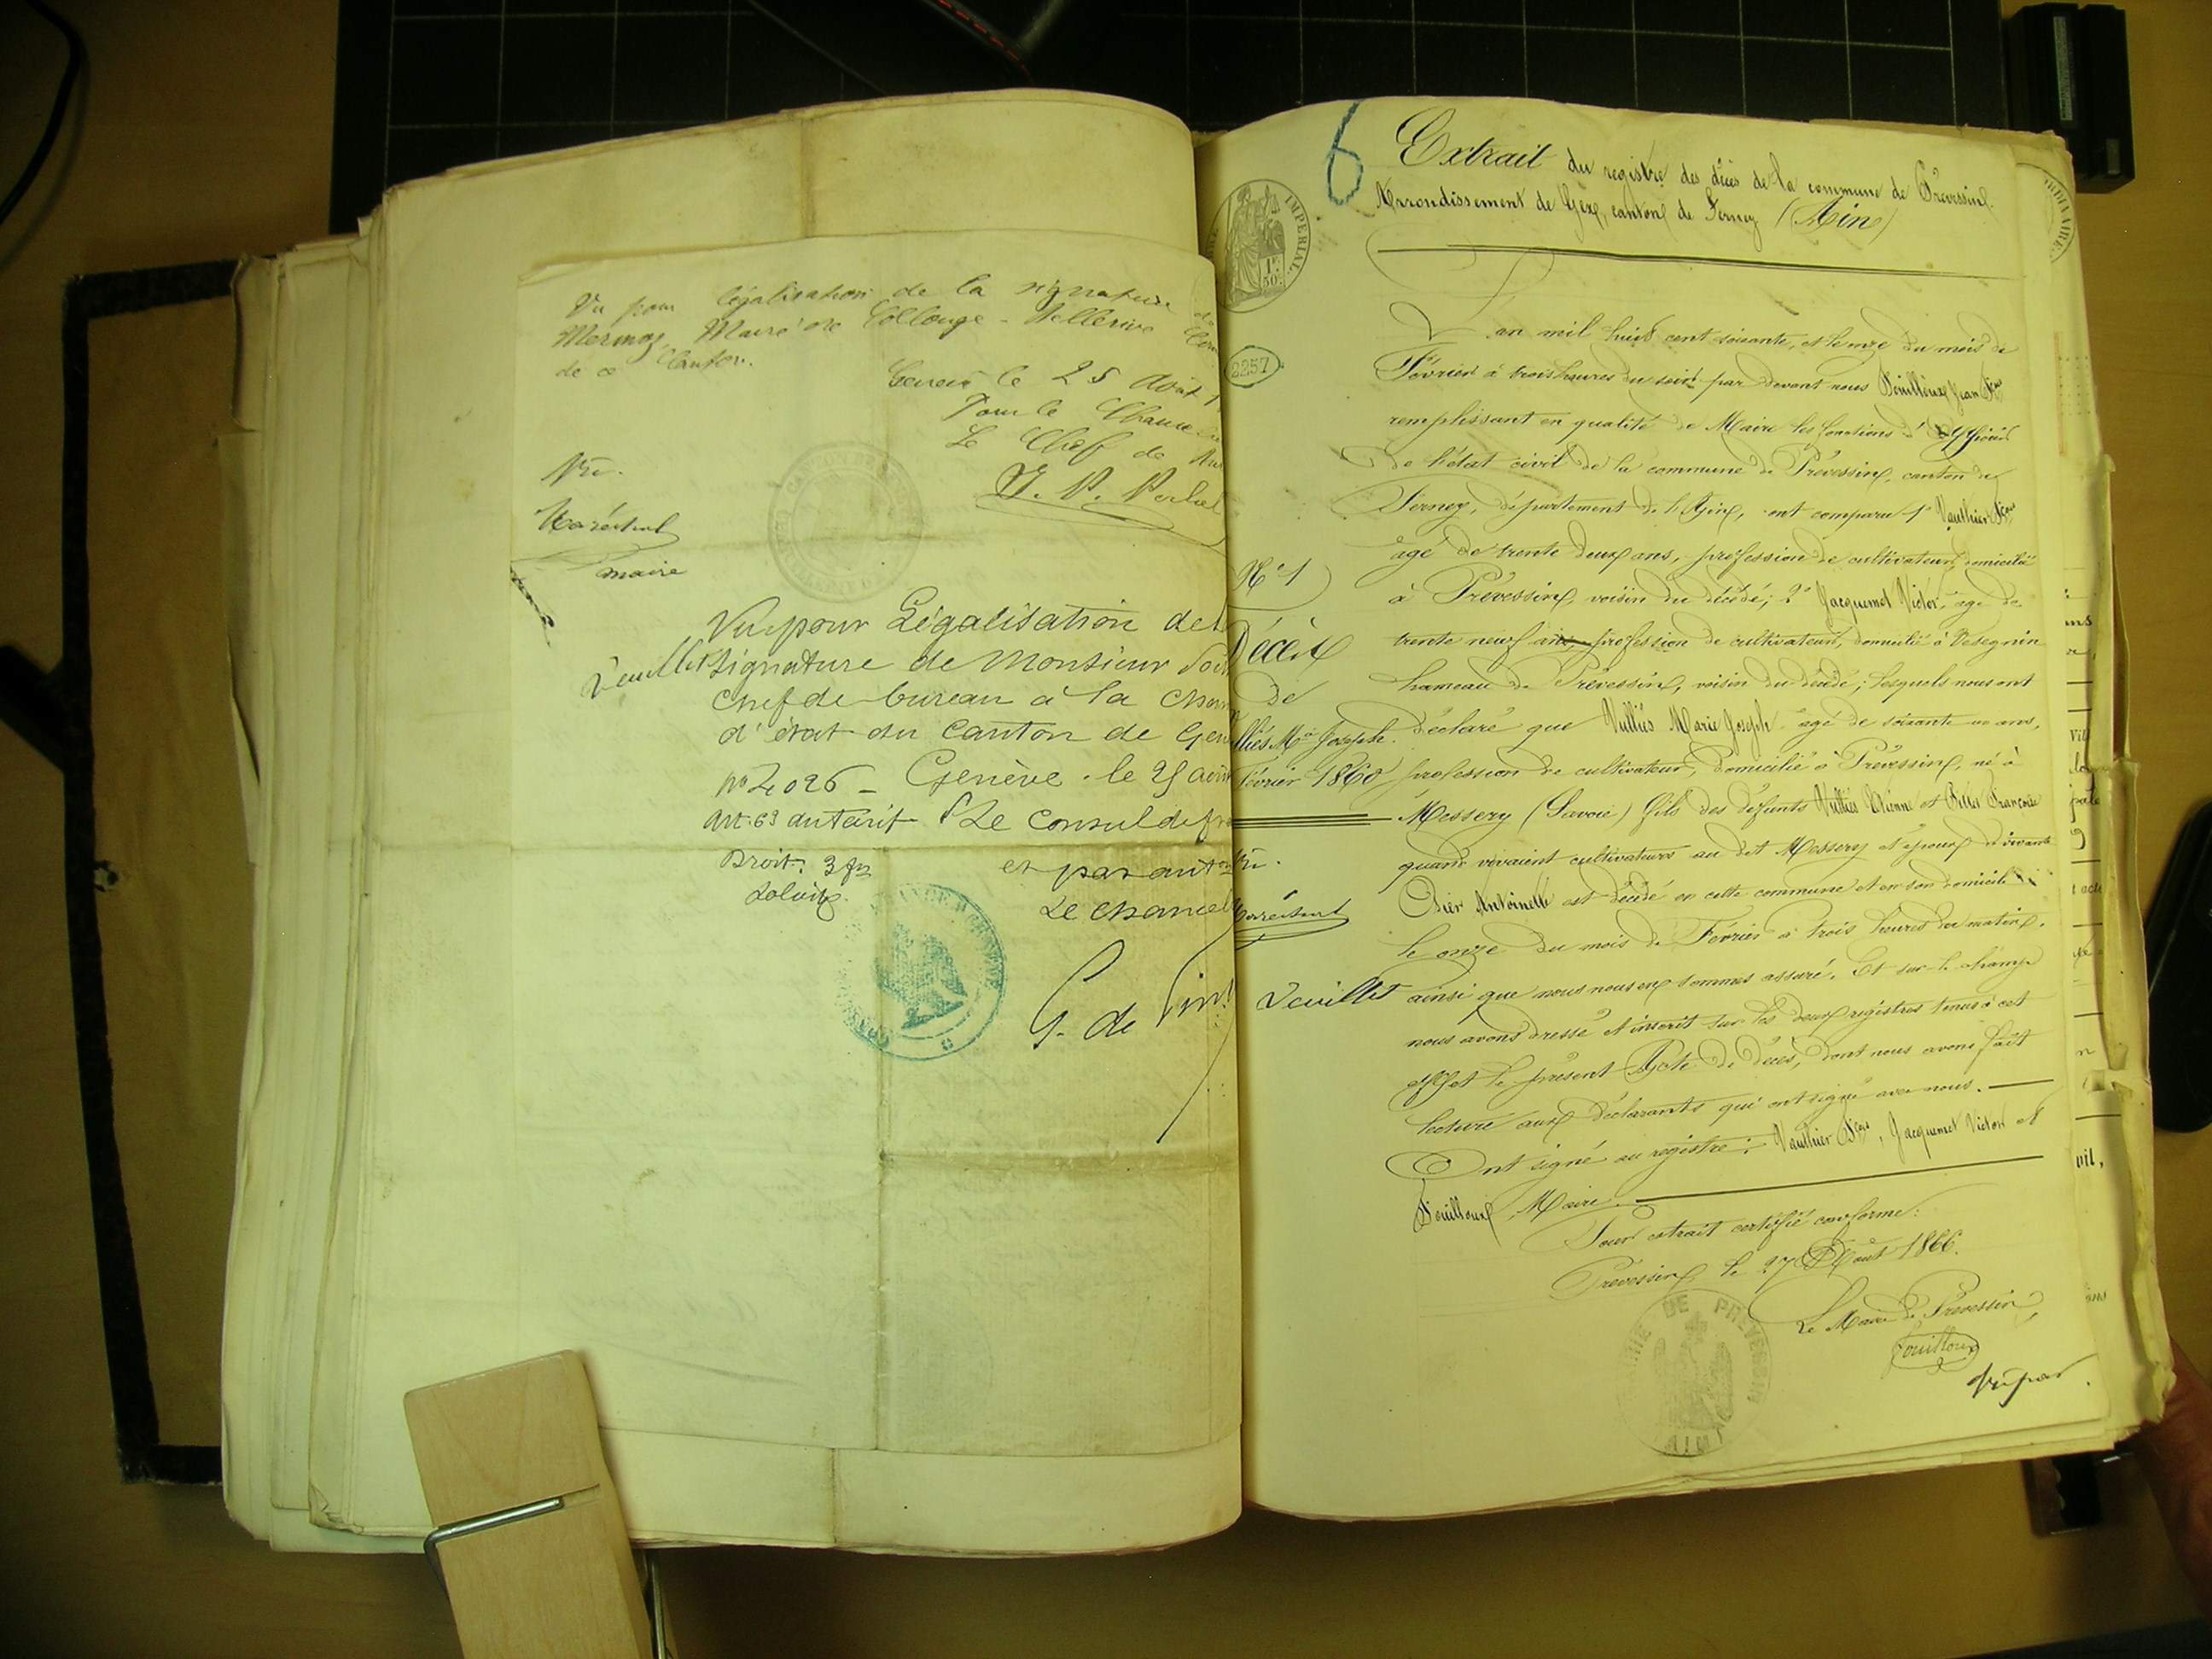 Vu pour légalisation de la signature de
Mermoz, Maire de Collonge-Bellerive
de ce Canton.
Genève le 25 Août
Pour le Chancelier
Le Chef de Bur
Vu.
Maréchal
maire
Vu pour Légalisation de l
Veuillet
signature de Monsieur
Chef de bureau à la Chan
d'état du Canton de Gen
No 2026 - Genève. le 25 août
Art. 63 du tarif Le Consul de fr
Droit: 3 frs
et par aut
Le Chancel
G. de
6
Extrait du registre des décès de la commune de Prévessin
Arrondissement de Gex, canton de Ferney (Ain)
IMPERIAL
1F
50c
2257
L'an mil huit cent soixante, et le onze du mois de
Février à trois heures du soir par devant nous Fouilloux Jean Fçois
remplissant en qualité de Maire les fonctions d'Officier
de l'état civil de la commune de Prévessin, canton de
Ferney, département de l'Ain, ont comparu 1° Vauthier Fçois
âgé de trente deux ans, profession de cultivateur, domicilié
à Prévessin, voisin du décédé; 2° Jacquemet Victor, âgé de
trente neuf ans, profession de cultivateur, domicilié à Vesegnin
hameau de Prévessin, voisin du décédé; lesquels nous ont
déclaré que Vulliés Marie Joseph âgé de soixante un ans,
profession de cultivateur, domicilié à Prévessin, né à
Messery (Savoie) fils des défunts Vulliés Etienne et Françoise
quand vivaient cultivateurs au dit Messery et époux de vivante
Antoinette est décédé en cette commune et en son domicile
le onze du mois de Février à trois heures du matin,
ainsi que nous nous en sommes assuré. Et sur le champ
nous avons dressé et inscrit sur les deux registres tenus à cet
effet le présent Acte de décès, dont nous avons fait
lecture aux déclarants qui ont signé avec nous.
Ont signé au registre: Vauthier Fçois, Jacquemet Victor et
Fouilloux, Maire.
Pour extrait certifié conforme:
Prévessin, le 27 Août 1866.
Le Maire de Prévessin,
Fouilloux
Vu par
N° 1
Décès
de
lliés Mie Joseph.
Février 1860
Vu.
Maréchal
Veuillet
DE PREVESSIN
AIN